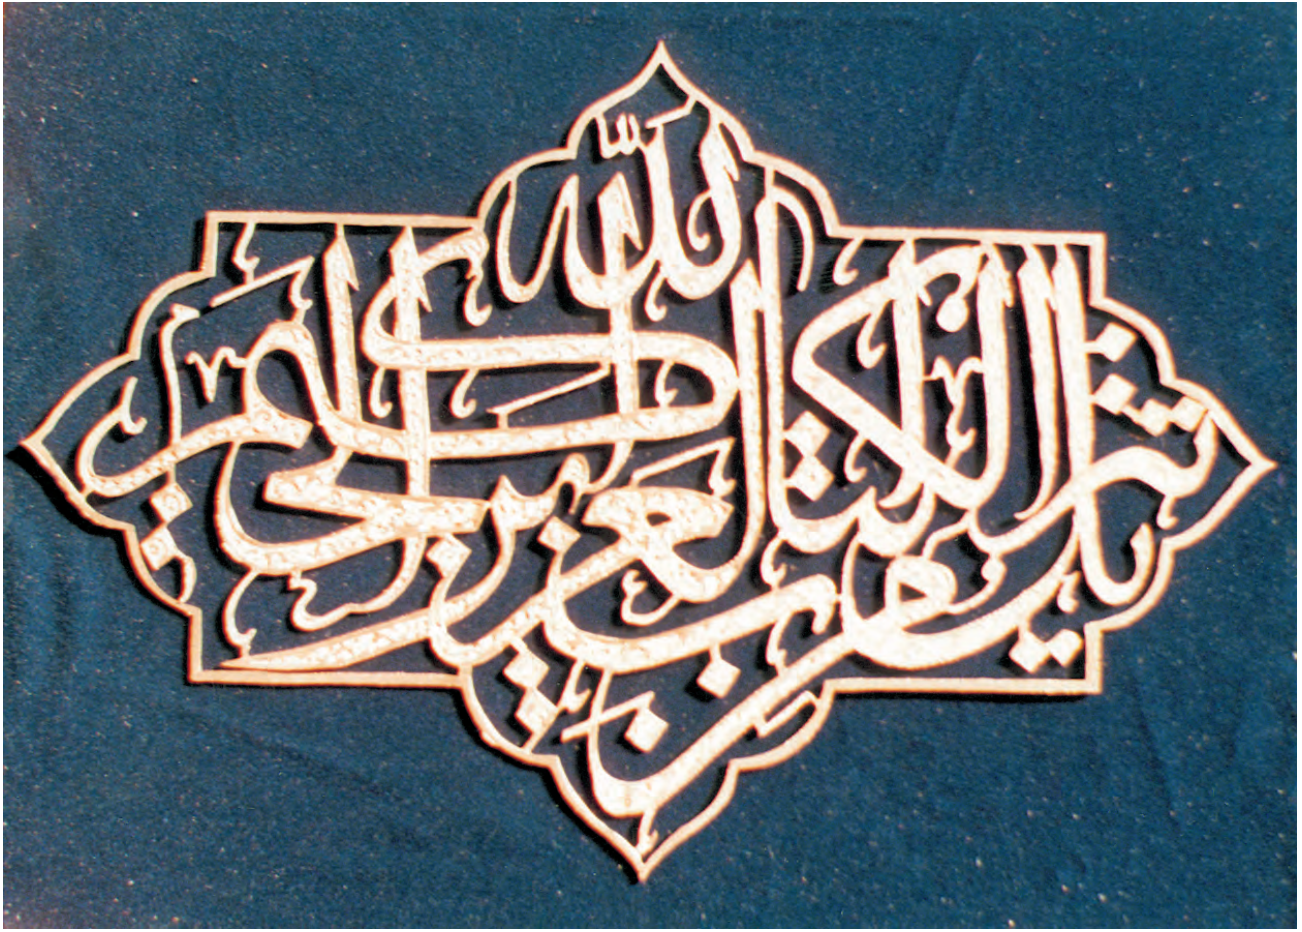 تنزيل الكتاب من الله العزيز الحكيم